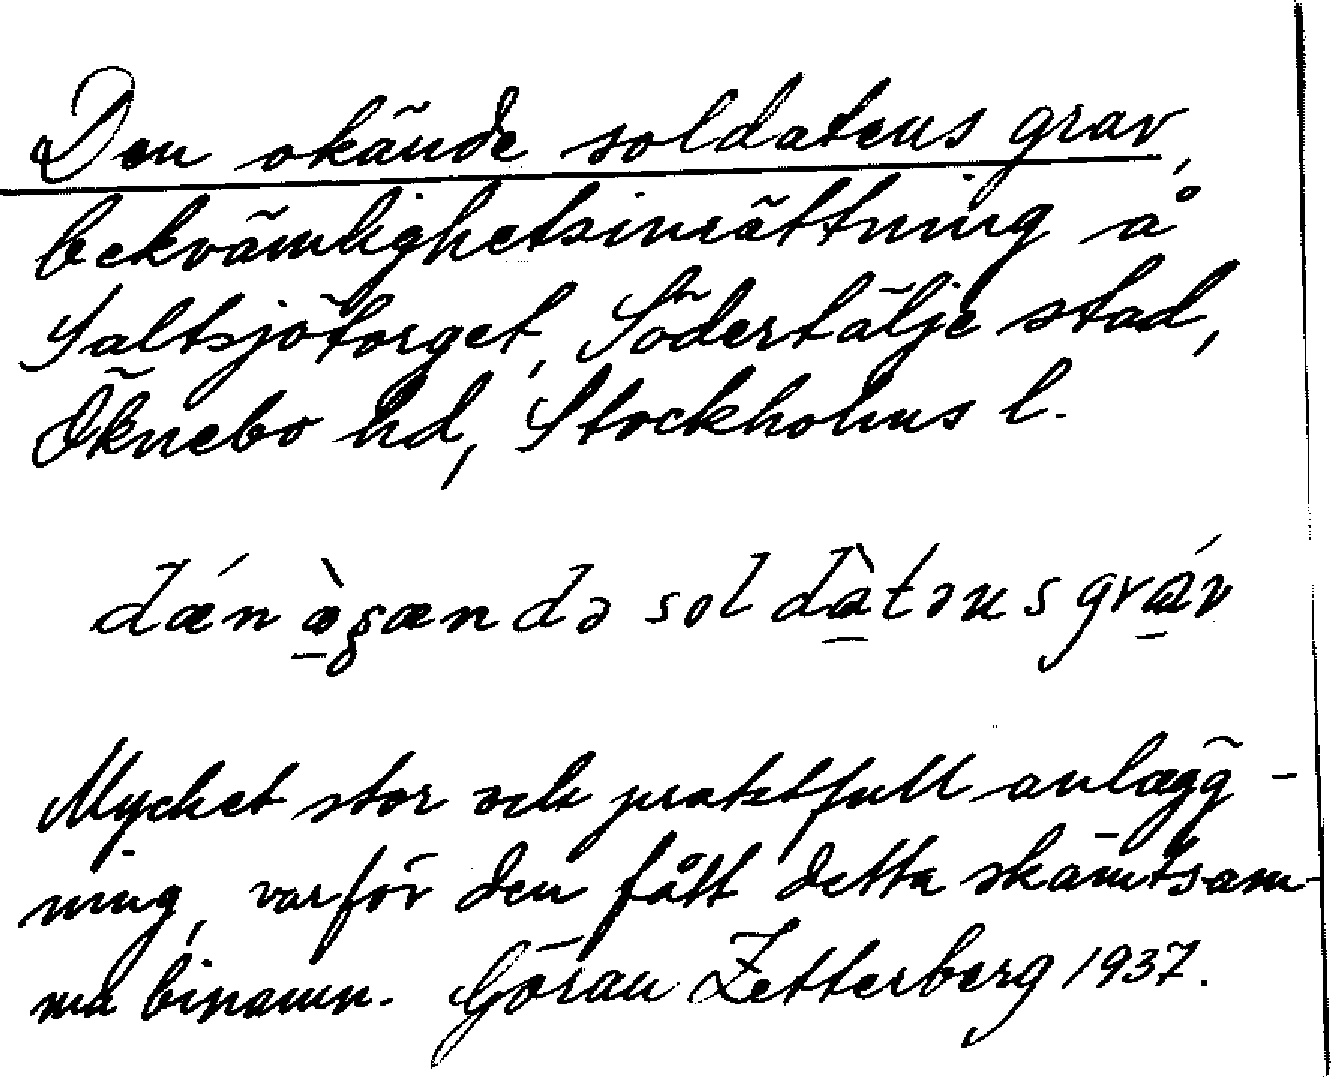 Den okände soldatens grav,
bekvämlighetsinrättning å
Saltsjötorget, Södertälje stad,
Öknebo hd, Stockholms l.
dǽn ɷ̀çændə soldàtəns gráv
Mycket stor och praktfull anlägg-
ning, varför den fått detta skämtsam-
ma binamn. Göran Zetterberg 1937.